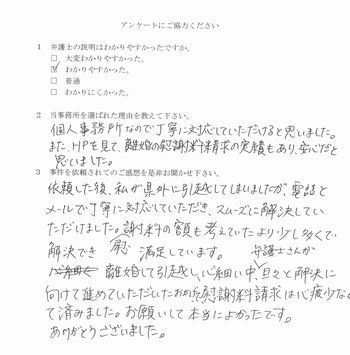 アンケートにご協力ください
1 弁護士の説明はわかりやすかったですか。
□ 大変わかりやすかった。
☑ わかりやすかった。
□ 普通
□ わかりにくかった。
2 当事務所を選ばれた理由を教えて下さい。
個人事務所なので丁寧に対応していただけると思いました。
また、HPを見て、離婚の慰謝料請求の実績もあり、安心だと
思いました。
3 事件を依頼されてのご感想を是非お聞かせ下さい。
依頼した後、私が県外に引越してしまいましたが電話と
メールで丁寧に対応していただき、スムーズに解決してい
ただけました。謝料の額も考えていたより少し多くて
慰
解決でき 満足しています。 弁護士さんが
離婚して引越し、心細い中、日々と解決に
向けて進めていただいたおかげで慰謝料請求は心疲少な
て済みました。お願いして本当によかったです。
ありがとうございました。